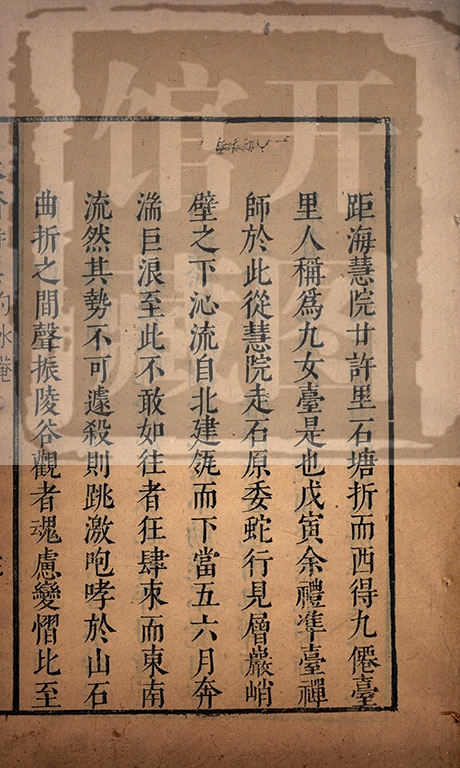 距海慧院廿許里石塘折而西得九僊臺
里人稱為九女臺是也戊寅余禮準臺禪
師於此從慧院走石原委蛇行見層巖峭
壁之下沁流自北建瓴而下當五六月奔
湍巨浪至此不敢如往者狂肆束而東南
流然其勢不可遽殺則跳激咆哮於山石
曲折之間聲振陵谷觀者魂慮變慴比至
开图
馆藏